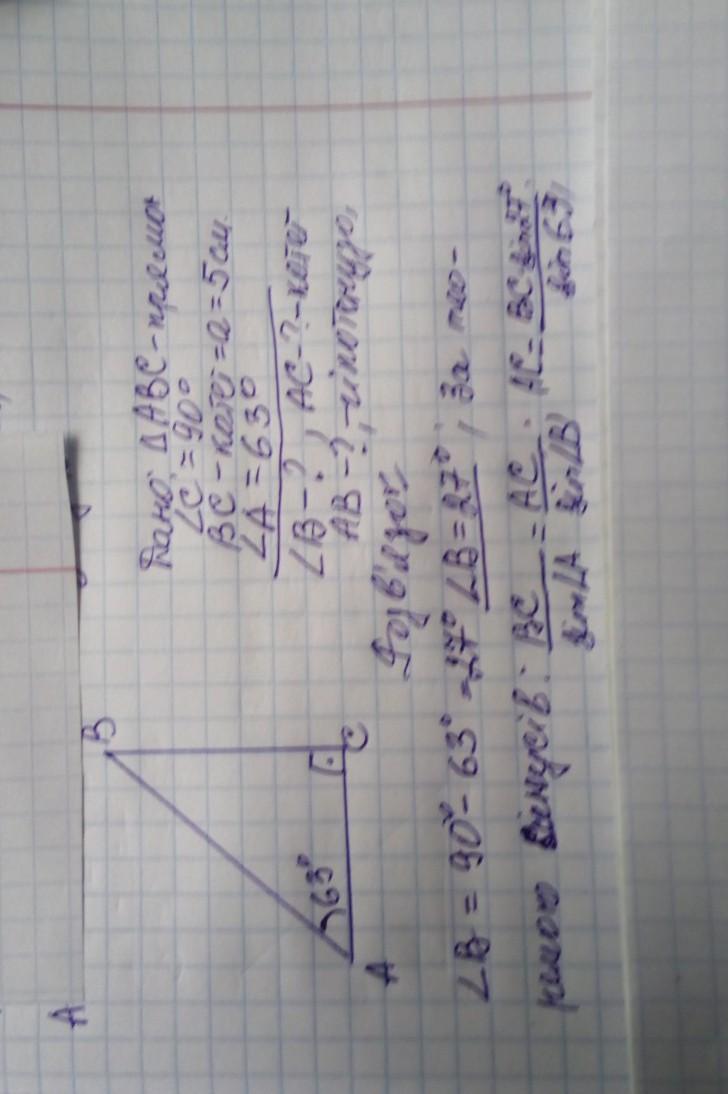 A
B
63°
A
C
Дано: ΔABC-прямок
∠C = 90°
BC - катет = a = 5 см.
∠A = 63°
∠B - ?, AC - ? - катет
AB - ?, - гіпотенуза,
Розв'язок
∠B = 90° - 63° = 27° ∠B = 27°; За тео-
ремою синусів: BC/sin∠A = AC/sin∠B. AC = BC·sin27°/sin63°,